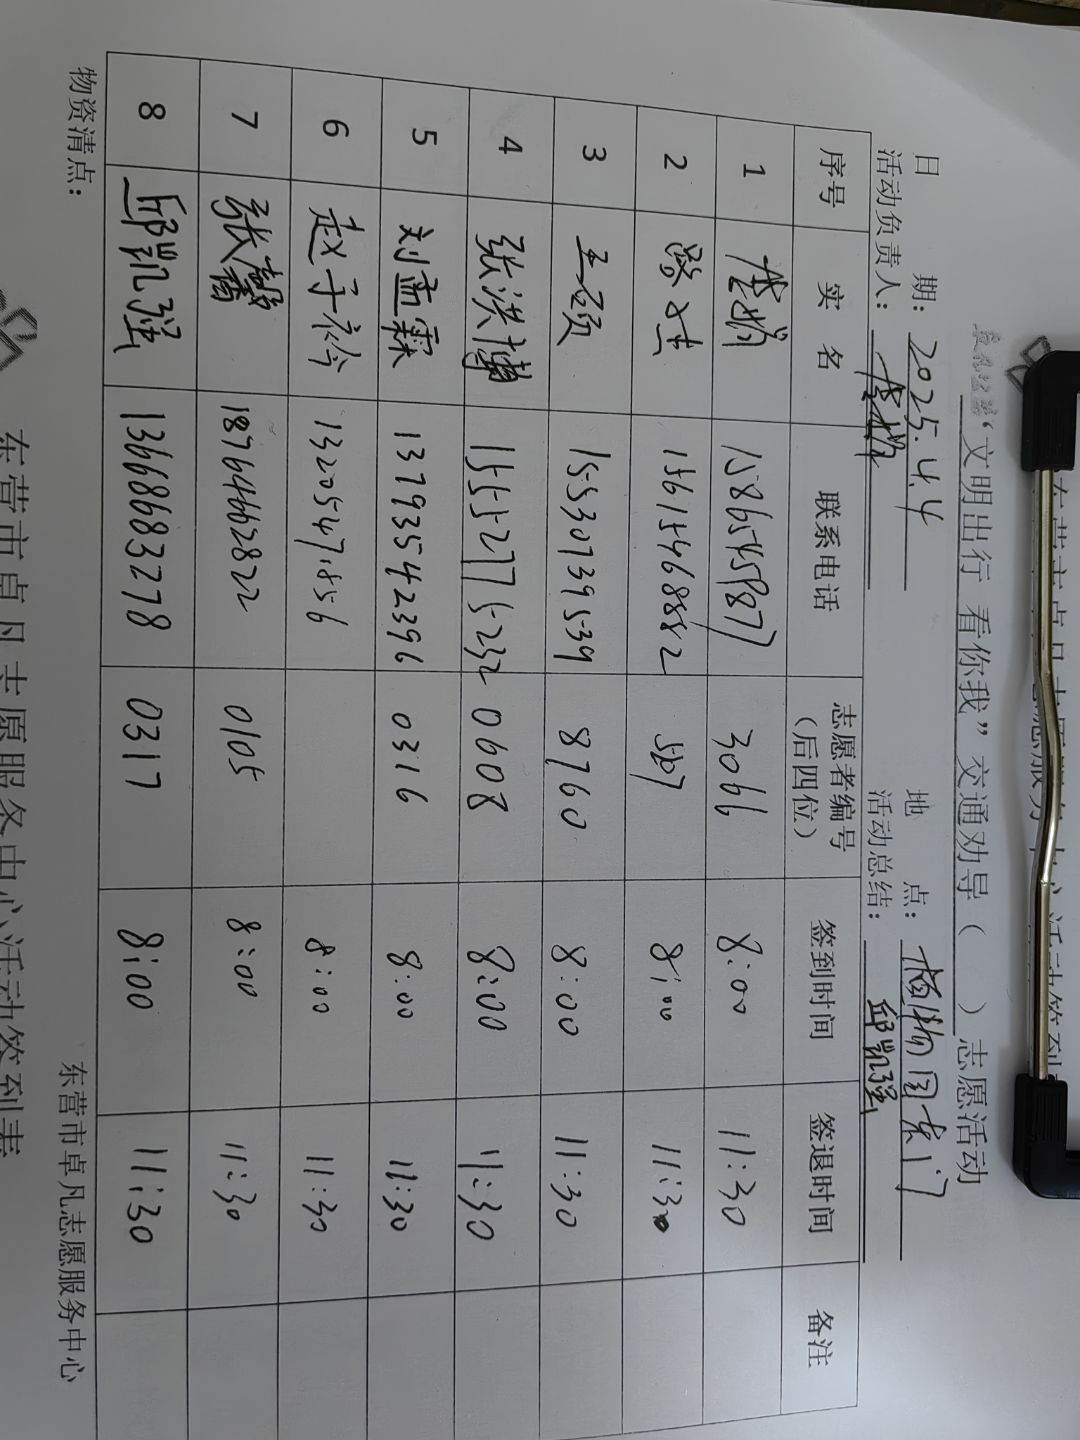 “文明出行 看你我”交通劝导（ ）志愿活动
日 期：2025.4.4 地 点：植物园东门
活动负责人： 活动总结：邱凯强
序号 实 名 联系电话 志愿者编号（后四位） 签到时间 签退时间 备注
1 3066 8:00 11:30
2 8:00 11:30
3 王硕 15530739539 8760 8:00 11:30
4 张洪博 15552775232 0608 8:00 11:30
5 刘孟霖 13793542396 0316 8:00 11:30
6 赵子衿 13205471856 8:00 11:30
7 张馨 18764662822 0105 8:00 11:30
8 邱凯强 13668683278 0317 8:00 11:30
物资清点： 东营市卓凡志愿服务中心
东营市卓凡志愿服务中心活动签到表